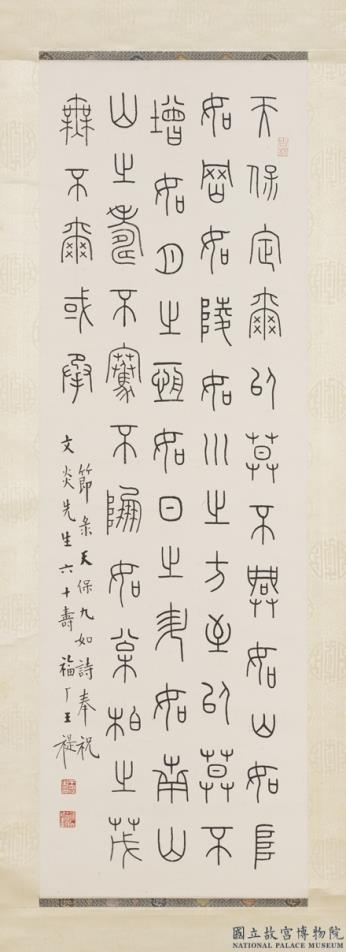 天保定爾以莫不興如山如阜
如岡如陵如川之方至以莫不
增如月之恆如日之升如南山
山之壽不騫不崩如松柏之茂
無不爾或承
節彔天保九如詩奉祝
文炎先生六十壽 福厂王禔
國立故宮博物院
NATIONAL PALACE MUSEUM